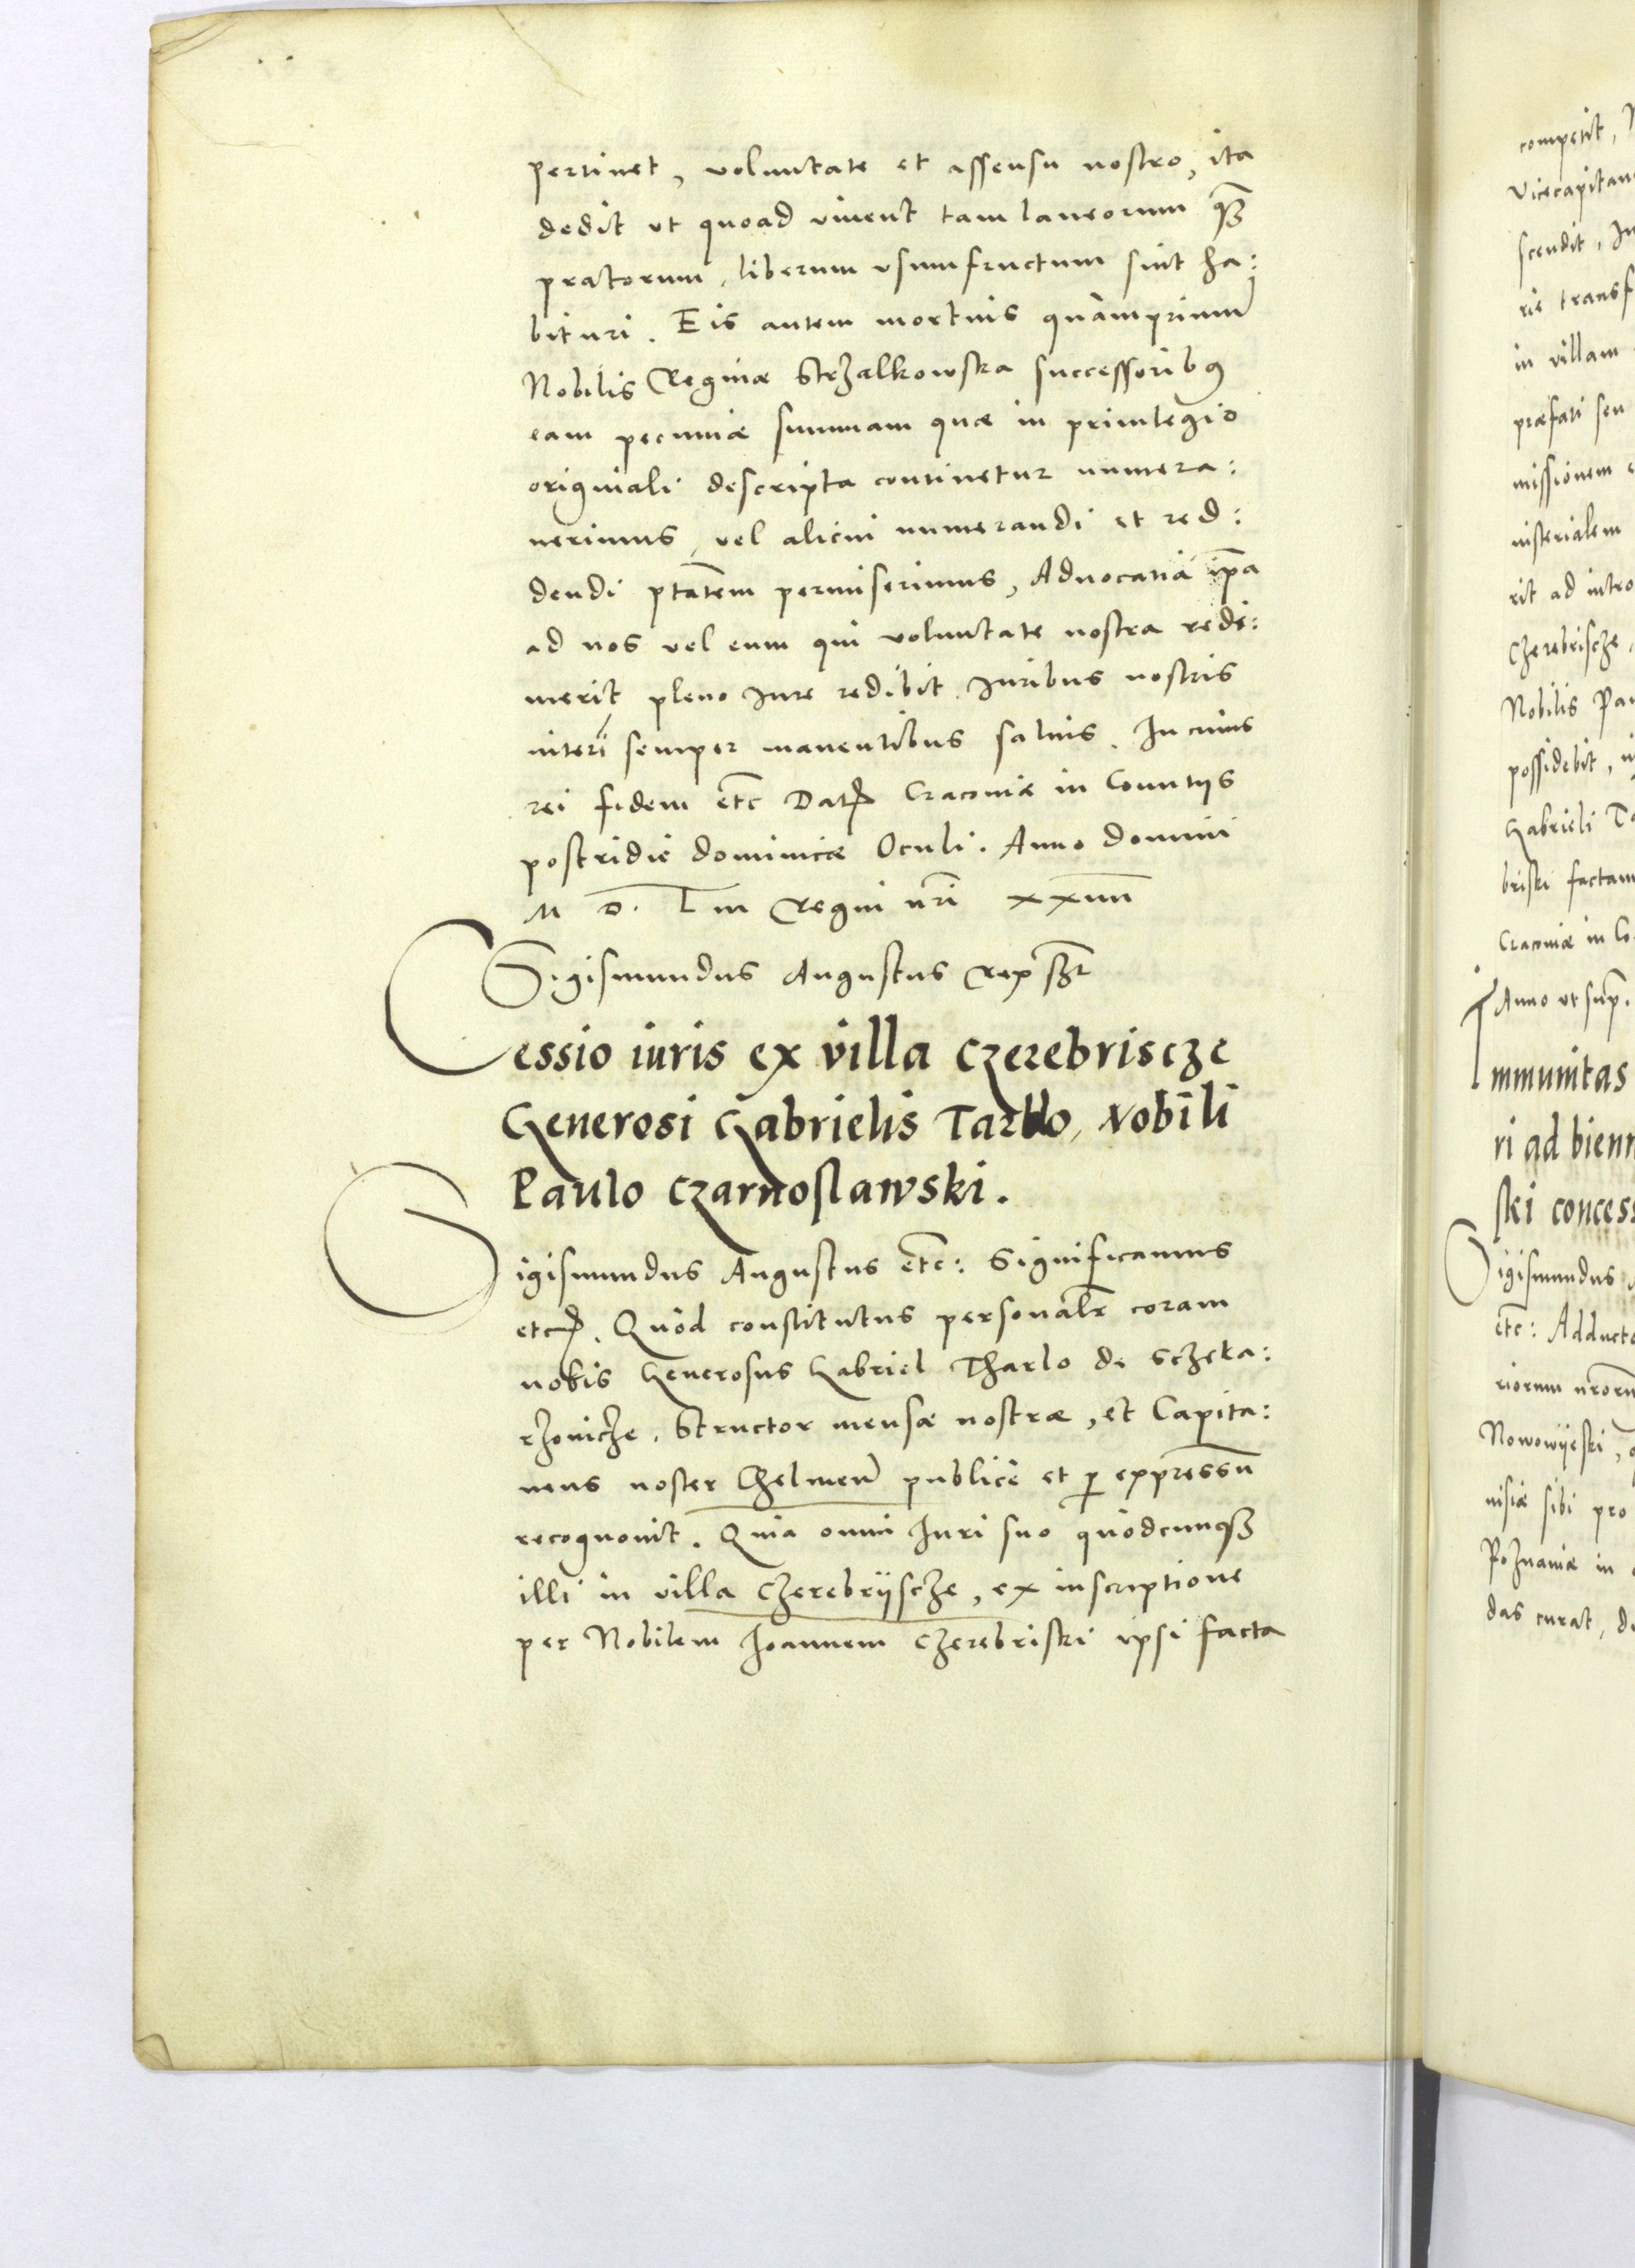 pertinet, voluntate et assensu nostro, ita
dedit ut quoad vivent tam laneorum qȝ
pratorum, liberum usumfructum sint ha:
bituri. Eis autem mortuis quàmprimum
Nobilis Reginæ Strzalkowska successoribꝰ
eam pecuniæ summam quæ in privilegio
originali descripta continetur numera:
uerimus, vel alicui numerandi et red:
dendi ptãtem permiserimus, Aduocatia ip̃a
ad nos vel eum qui voluntate nostra rede:
merit pleno iure redibit. Iuribus nostris
interĩ semper manentibus saluis. In cuius
rei fidem etc Dat Cracoviæ in Comitijs
postridie dominicæ Oculi. Anno domini
M D. L iii Regni nr̃i xxiiii
Sigismundus Augustus Rex sszt
Cessio iuris ex villa Czerebriscze
Generosi Gabrielis Tarlo, Nobili
Paulo Czarnoslawski.
Sigismundus Augustus etc: Significamus
etc. Quòd constitutus personalr̃ coram
nobis Generosus Gabriel Tharlo de Sczeka:
rzovicze, Structor mensæ nostræ, et Capita:
neus noster Chelmen̄ publicè et ꝑ expressũ
recognouit. Quia omni Iuri suo quodcunqȝ
illi in villa Czerebrijscze, ex inscriptione
per Nobilem Ioannem Czerebriski ipsi facta
competit,
Vicecapitan
scendit, In
ris transf
in villam
præfati seu
missionem
nisterialem
rit ad intro
Czerebriscze,
Nobilis Pau
possidebit,
Gabrieli Ta
briski factam
Cracoviæ in Co
Anno ut sup̃.
Immunitas
ri ad bienn
ski concess
Sigismundus
etc: Adducto
riorum nr̃orum
Nowowijeski,
nisiæ sibi pro
Poznaniæ in
das curat, de